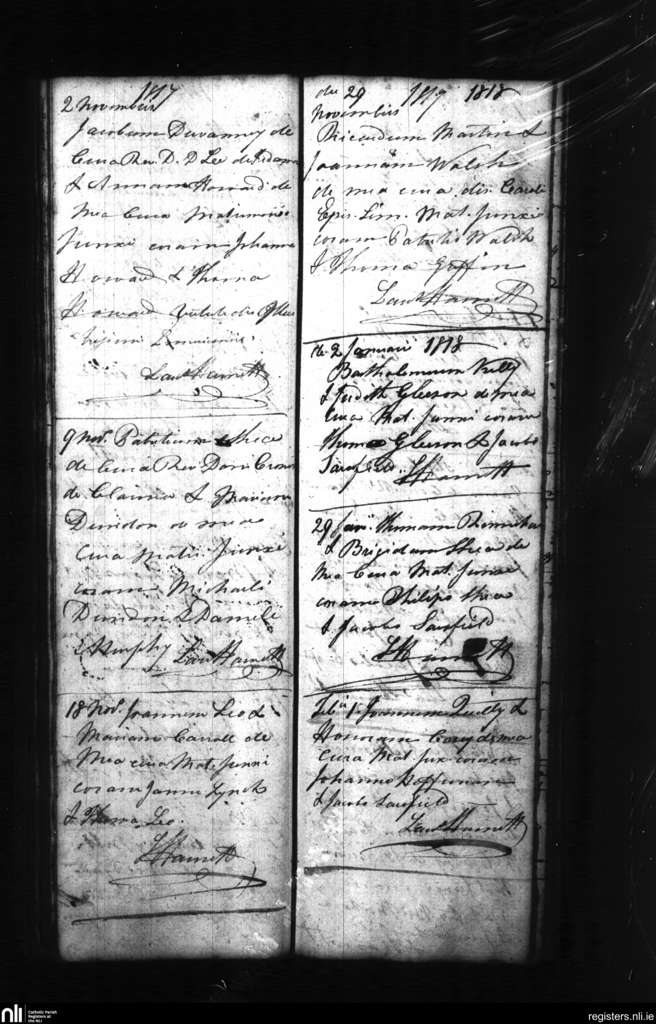 1817
2 Novembris
Jacobum Duvanney de
Cura Rev. D. D Leo de
& Annam Howard de
Mea Cura Matrimonio
Junxi coram Johanne
Howard & Thoma
Howard
Laut Harnett
9 Nov. Patricium Shea
de Cura Rev. Dom
de & Mariam
Dundon de mea
Cura Matri. Junxi
coram Michaeli
Dundon & Danieli
Murphy Laut Harnett
18 Nov. Joannem Leo &
Mariam Carroll de
Mea cura Mat. Junxi
coram Lynch
& Thoma Leo.
L Harnett
die 29 1817 1818
Novembris
Ricardum Martin &
Joannam Walsh
de mea cura dis.
Epis. Lim. Mat. Junxi
coram Patritio Walsh
& Thoma Goffin
Laut Harnett
die 2 Januarii 1818
Bartholomeum Kelly
& Judith Gleeson de mea
Cura Mat. Junxi coram
Thoma Gleeson & Jacobo
Sarsfield. L Harnett
29 Jan. Thomam
& Brigidam Shea de
Mea Cura Mat. Junxi
coram Philipo Shea
& Jacobo Sarsfield
L Harnett
Feb. 1. Joannem Quilty &
Honoram de mea
Cura Mat Junx coram
Johanne Heffernan
& Jacobo Sarsfield
Laut Harnett
nli Catholic Parish
Registers at
the NLI
registers.nli.ie